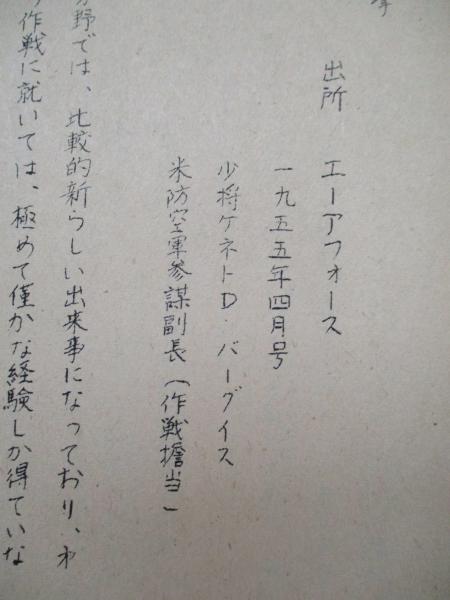 出所　エーアフォース
一九五五年四月号
少将ケネトD・バーグイス
米防空軍参謀副長（作戦擔当）
野では、比較的新らしい出来事になっており、わ
作戦に就いては、極めて僅かな経験しか得ていな